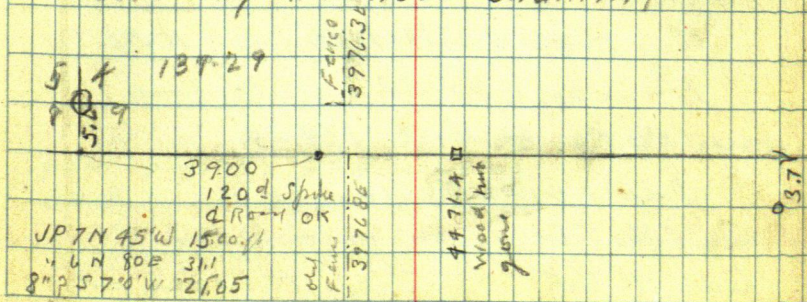 5 4
137.29
8 9
5.6
Fence
3976.36
39.00
120d Spike
¢ Road OK
JP 7 N 45°W 15.00 ft
" 6 N 80E 31.1
8" S 70°W 21.05
old Fence
3976.86
4471.4
Wood hub
gone
3.7